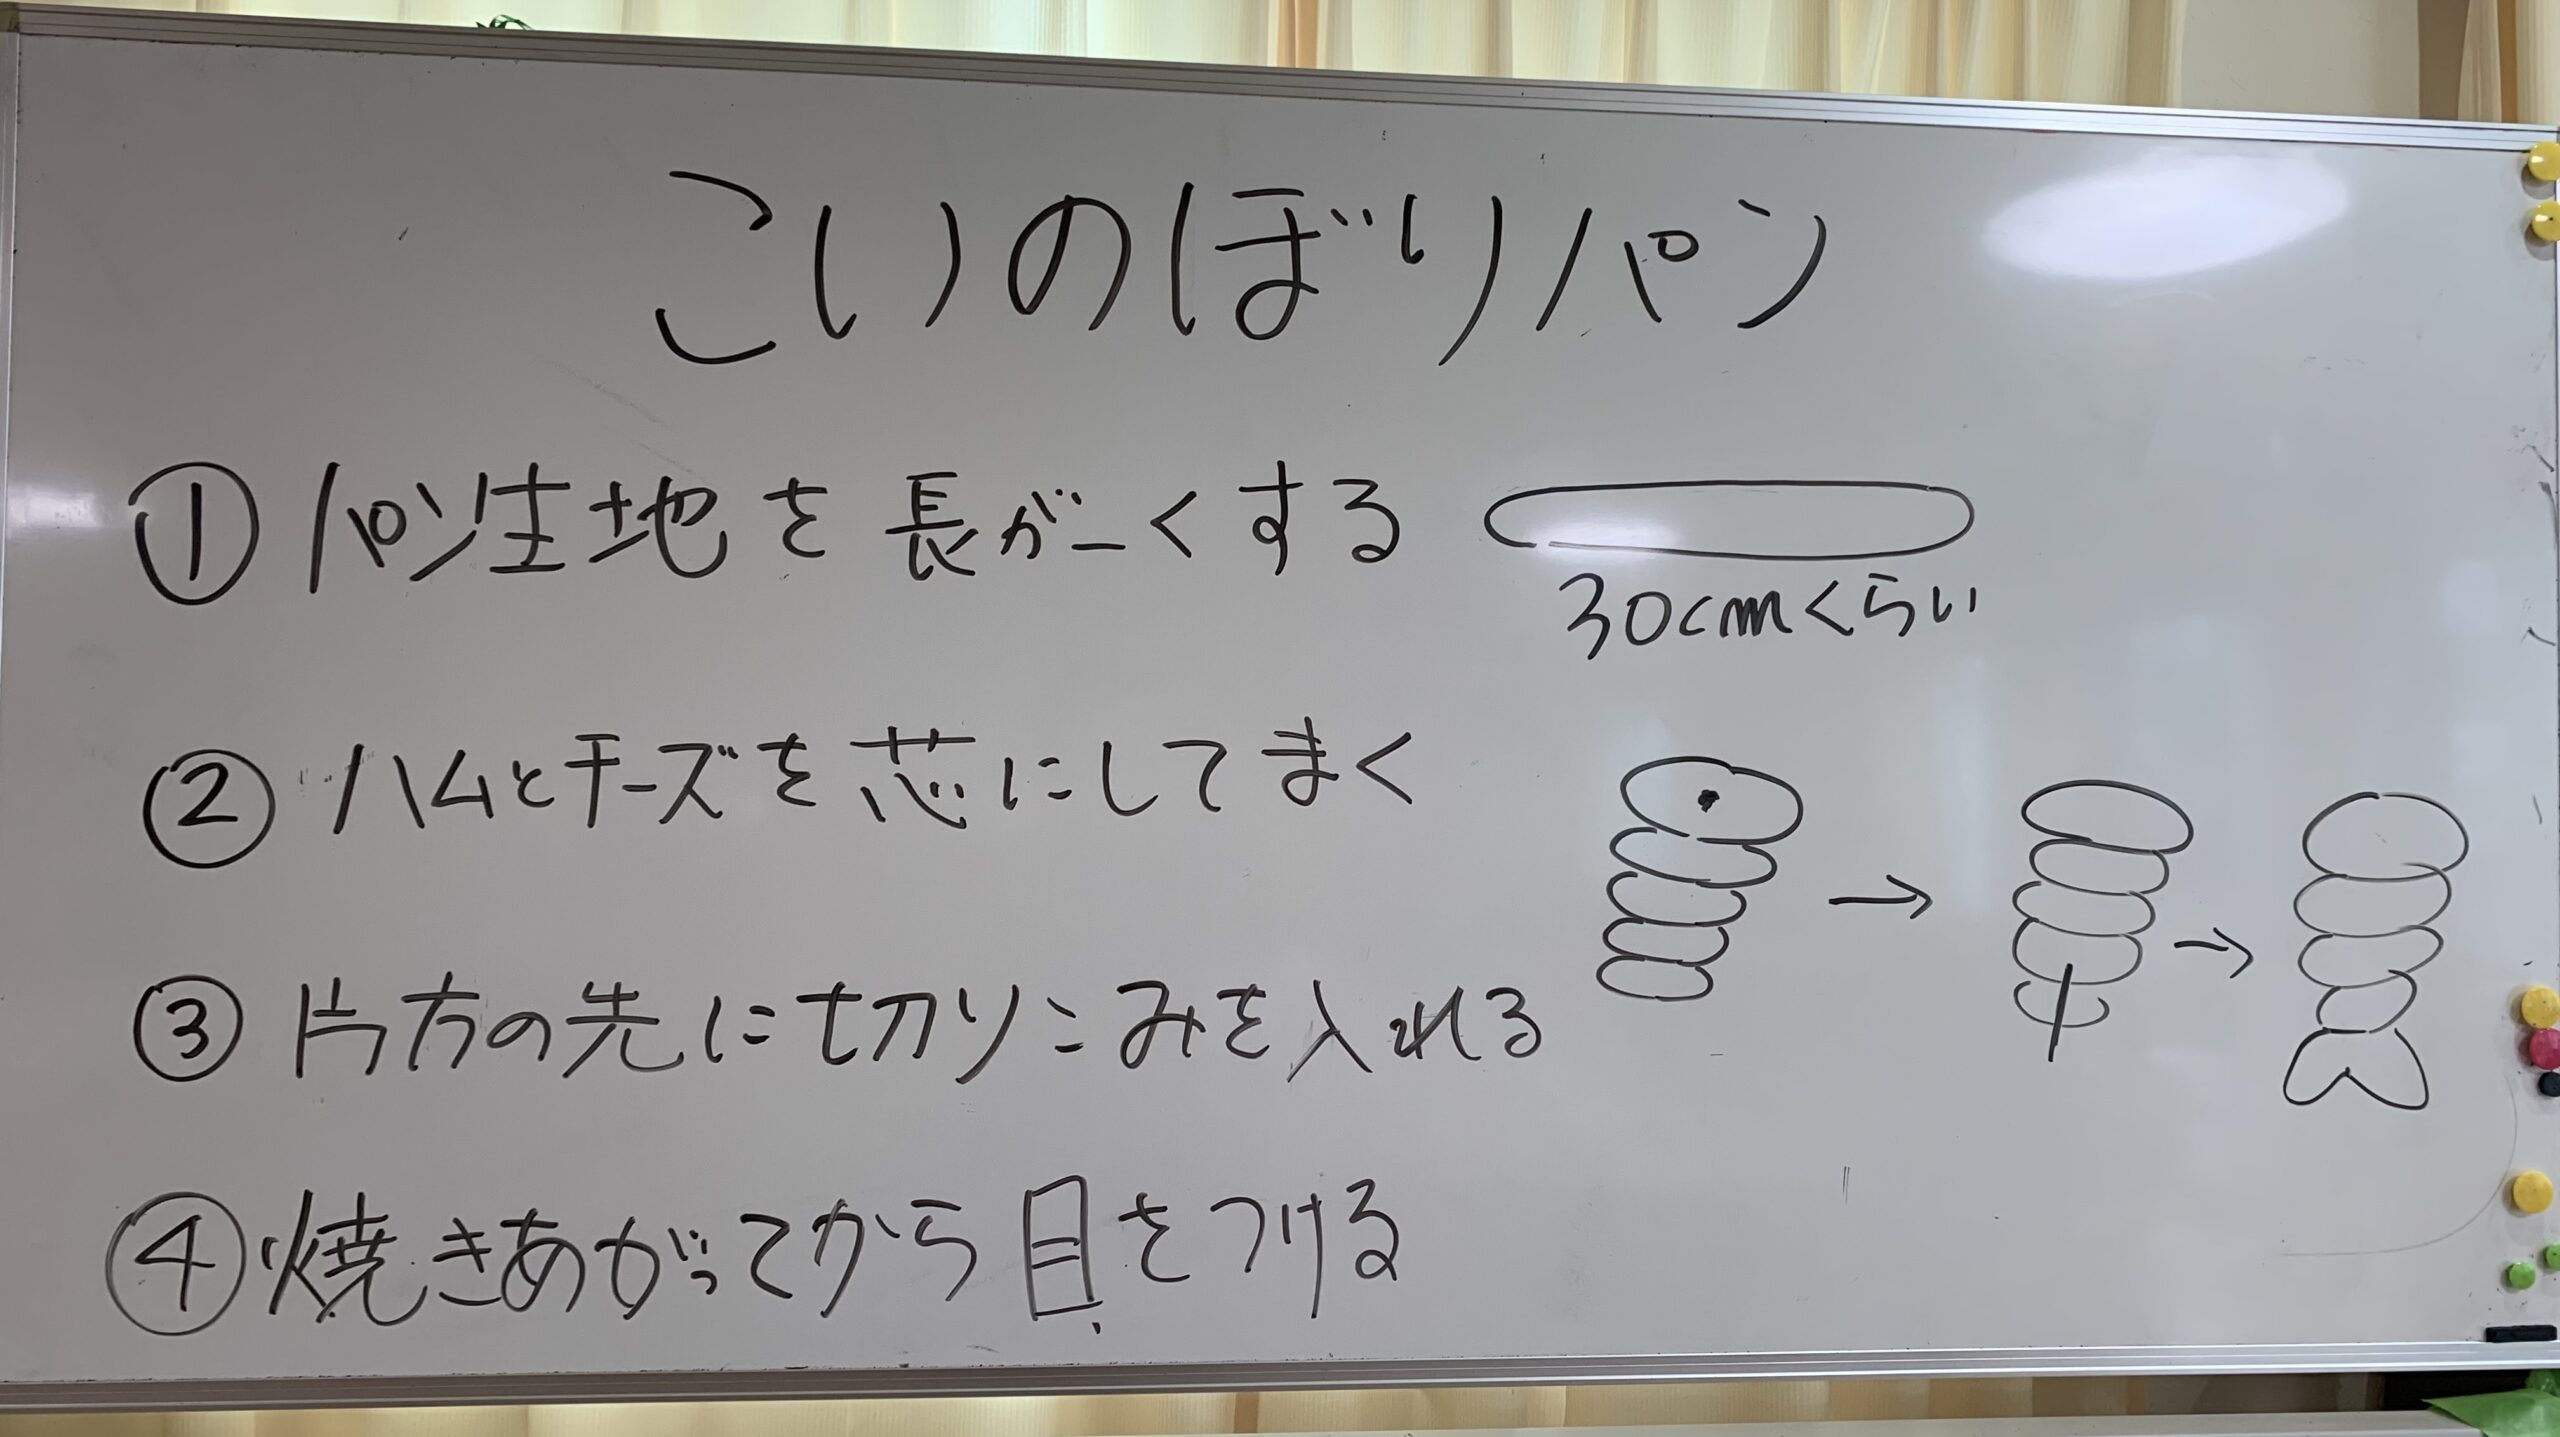 こいのぼりパン
①パン生地を長がーくする
30cmくらい
②ハムとチーズを芯にしてまく
③片方の先に切りこみを入れる
④焼きあがってから目をつける